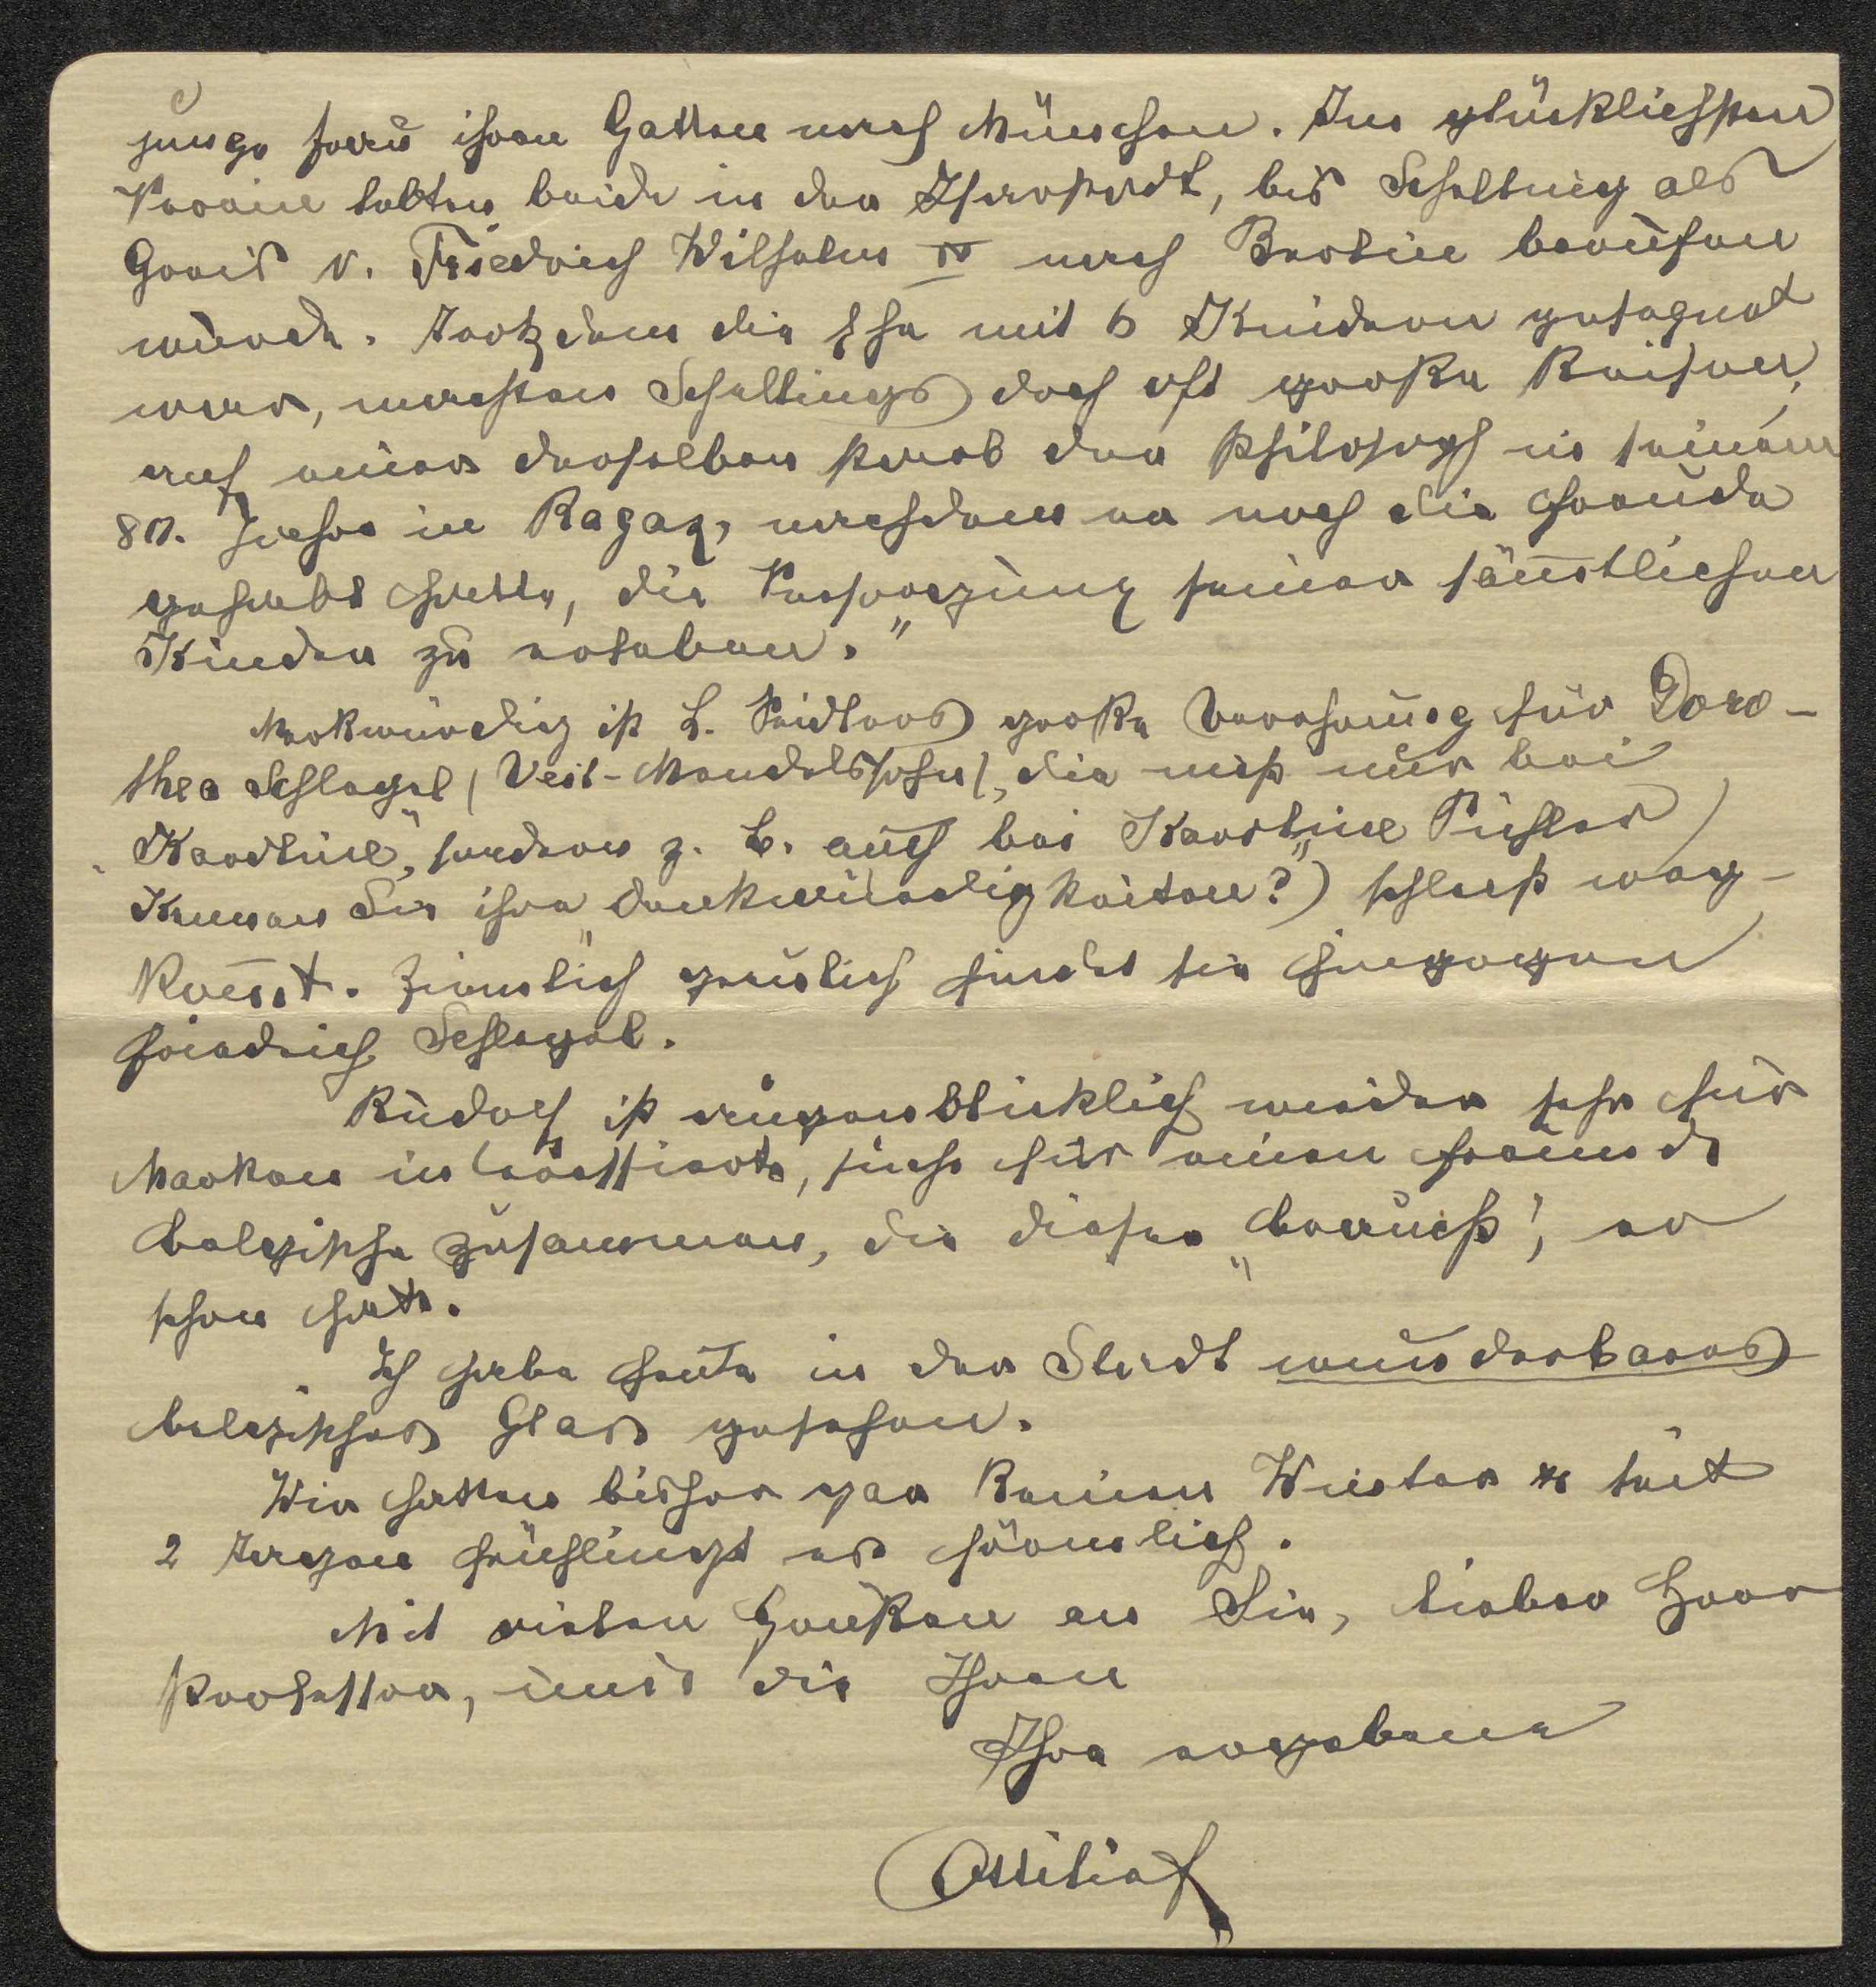 junge Frau ihrem Gatten nach München. Im glücklichsten
Vereine lebten beide in der Isarstadt, bis Schelling als
Greis v. Friedrich Wilhelm IV nach Berlin berufen
wurde. Trotzdem die Ehe mit 6 Kindern gesegnet
war, machten Schellings doch oft große Reisen,
auf einer derselben starb der Philosoph in seinem
80. Jahre in Ragaz, nachdem er noch die Freude
gehabt hatte, die Versorgung seiner sämtlichen
Kinder zu erleben."
Merkwürdig ist L. Seidlers große Verehrung für Doro-
thea Schlegel (Veit-Mendelssohn), die nicht nur bei
"Karoline", sondern z. B. auch bei Karoline Pichler
Kennen Sie ihre "Denkwürdigkeiten"?) schlecht weg-
kommt. Ziemlich greulich findet sie hingegen
Friedrich Schlegel.
Rudolf ist augenblicklich wieder sehr für
Marken interessiert, sucht für einen Freund
belgische zusammen, die dieser "braucht", er
schon hat.
Ich habe heute in der Stadt wunderbares
belgisches Glas gesehen.
Wir hatten bisher gar keinen Winter seit
2 Tagen frühlingt es förmlich.
Mit vielen Grüßen an Sie, lieber Herr
Professor, und die Ihren
Ihre ergebene
Ottilie